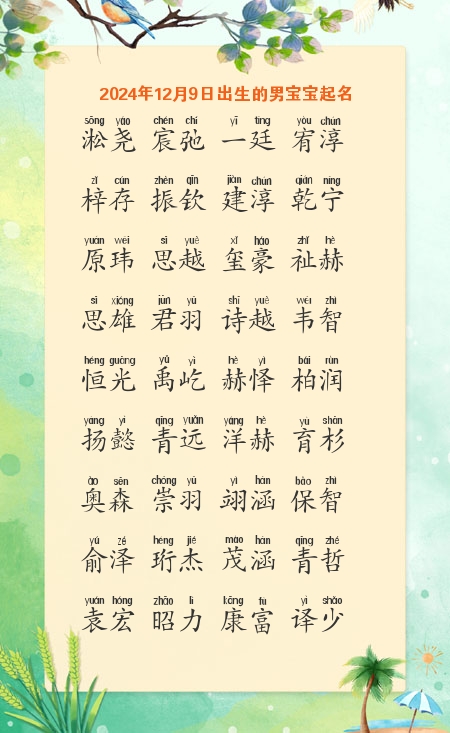 2024年12月9日出生的男宝宝起名
sōng yáo chén chí yī tíng yòu chún
淞尧 宸弛 一廷 宥淳
zǐ cún zhèn qīn jiàn chún qián níng
梓存 振钦 建淳 乾宁
yuán wěi sī yuè xǐ háo zhǐ hè
原玮 思越 玺豪 祉赫
sī xióng jūn yǔ shī yuè wéi zhì
思雄 君羽 诗越 韦智
héng guāng yǔ yì hè yì bǎi rùn
恒光 禹屹 赫怿 柏润
yáng yì qīng yuǎn yáng hè yù shān
扬懿 青远 洋赫 育杉
ào sēn chóng yǔ yì hán bǎo zhì
奥森 崇羽 翊涵 保智
yú zé héng jié mào hán qīng zhé
俞泽 珩杰 茂涵 青哲
yuán hóng zhāo lì kāng fù yì shào
袁宏 昭力 康富 译少